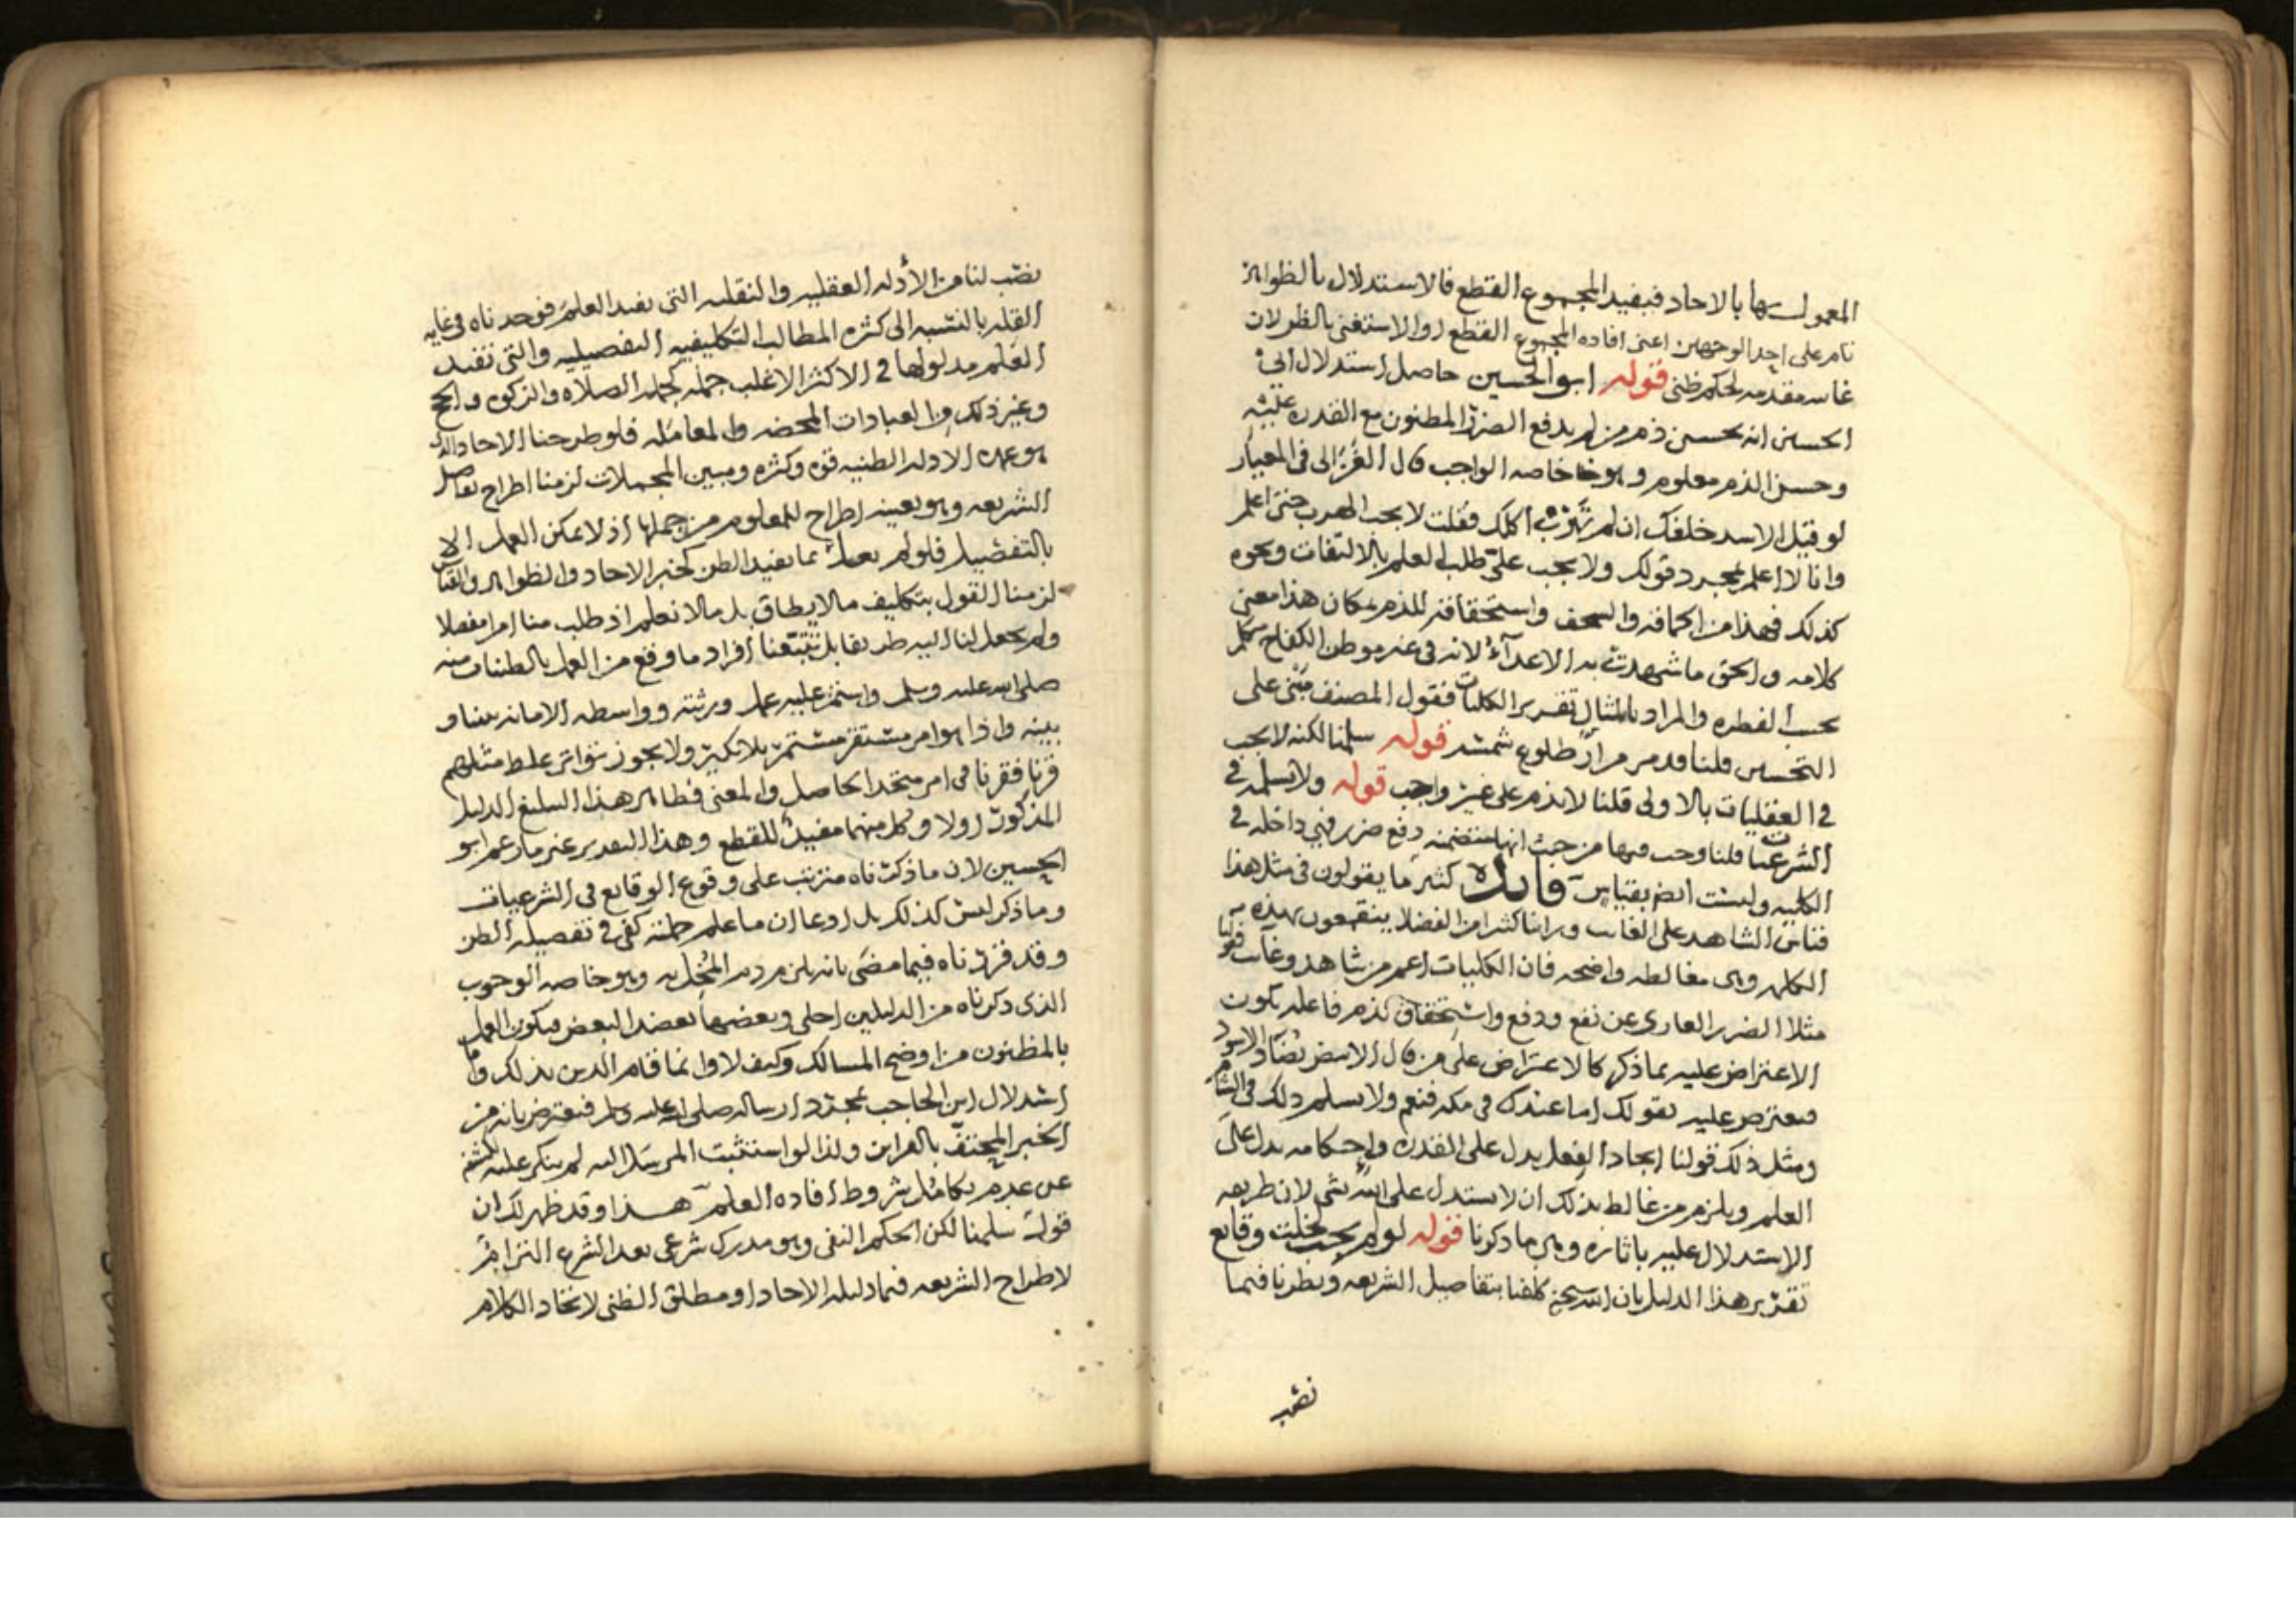 المعمول بها بالاحاد فيفيد المجموع القطع فالاستدلال بالظواهر
تام على احد الوجهين اعنى افاده المجموع القطع اوالاستغنى بالظو لان
غايته مقدمه لحكم ظنى قوله ابو الحسين حاصل استدلال ابى
الحسين انه يحسن ذم من لم يدفع الضرر المظنون مع القدره عليه
وحسن الذم معلوم وهو خاصه الواجب قال الغزالى فى المعيار
لو قيل الاسد خلفك ان لم تهرب اكلك فقلت لا يجب الهرب حتى اعلم
وانا لا اعلم بمجرد قولك ولا يجب علىّ طلب العلم بالالتفات ونحوه
كذلك فهذا من الحماقه والسخف واستحقاقه للذم مكان هذا معنى
كلامه والحق ما شهدت به الاعدآء لانه فى غير موطن الكفاح تكلم
بحسب الفطره والمراد بالمثال تقرير الكليات فقول المصنف مبنى على
التحسين قلنا قد مر مرارً طلوع شمسه قوله سلمنا لكنه لا يجب
فى العقليات بالاولى قلنا لا نذم على غير واجب قوله ولا نسلمه فى
الشرعيات قلنا وجب فيها من حيث انها متضمنه دفع ضرر فهى داخله فى
الكليه وليست ايضا بقياس فايده كثير ما يقولون فى مثل هذا
قياس الشاهد على الغايب وراينا كثيرا من الفضلا ينقمعون بهذه
الكلمه وهى مغالطه واضحه فان الكليات اعم من شاهد وغايب فقولنا
مثلا الضرر العارى عن نفع ودفع واستحقاق يذم فاعله يكون
الاعتراض عليه بما ذكر كالاعتراض على من قال الابيض يضاد الاسود
فيعترض عليه بقولك اما عندك فى مكه فنعم ولا نسلم ذلك فى الشام
ومثل ذلك قولنا ايجاد الفعل يدل على القدره واحكامه يدل على
العلم ويلزم من غالط بذلك ان لا يستدل على الله بشى لان طريقه
الاستدلال عليه باثاره وهى ما ذكرنا قوله لو لم يجب لخلت وقايع
تقرير هذا الدليل بان الله سبحنه كلفنا بتفاصيل الشريعه ونظرنا فيما
نصب
نصب لنا من الأدله العقليه والنقليه التى تفيد العلم فوجدناه فى غايه
القله بالنسبه الى كثره المطالب التكليفيه التفصيليه والتى تفيد
العلم مدلولها فى الاكثر الاغلب جمله كجمله الصلاه والزكوه والحج
وغير ذلك من العبادات المحضه والمعامله فلو طرحنا الاحاد والذى
هو عمده الادله الظنيه قوه وكثره ومبين المجملات لزمنا اطراح تفاصيل
الشريعه وهو بعينه اطراح للمعلوم من جملها اذ لا يمكن العمل الا
بالتفصيل فلو لم يعمل بما يفيد الظن كخبر الاحاد والظواهر والقياس
لزمنا القول بتكليف ما لا يطاق بل ما لا نعلم اذ طلب منا امرا مفصلا
ولم يجعل لنا اليه طريقا بل تتبعنا افراد ما وقع من العمل بالظنيات منه
صلى الله عليه وسلم واستمر عليه عمل ورثته وواسطه الامانه بيننا و
بينه واذا هو امر مستقر مستمر بلا نكير ولا يجوز تواتر غلط مثلهم
قرنا فقرنا فى امر متحد الحاصل والمعنى فظاهر هذا التبليغ الدليل
المذكور اولا وكل منهما مفيد للقطع وهذا التقدير غير ما زعم ابو
الحسين لان ما ذكرناه مترتب على وقوع الوقايع فى الشرعيات
وما ذكر ليس كذلك بل ادعا ان ما علم جملته كفى فى تفصيله الظن
وقد قررناه فيما مضى بانه يلزم ذم المخل به وهو خاصه الوجوب
الذى ذكرناه من الدليلين اجلى وبعضها يعضد البعض فيكون العمل
بالمظنون من اوضح المسالك وكيف لا وانما قام الدين بذلك واما
استدلال ابن الحاجب بمجرد ارساله صلى الله عليه وسلم فيعترض بانه من
الخبر المحتف بالقراين ولذا لو استثبت المرسل اليه لم ينكر عليه
عن عدم تكامل شروط افاده العلم هذا وقد ظهر لك ان
قوله سلمنا لكن الحكم النفى وهو مدرك شرعى بعد الشرع التزام
لاطراح الشريعه فيما دليله الاحاد او مطلق الظنى لاتحاد الكلام